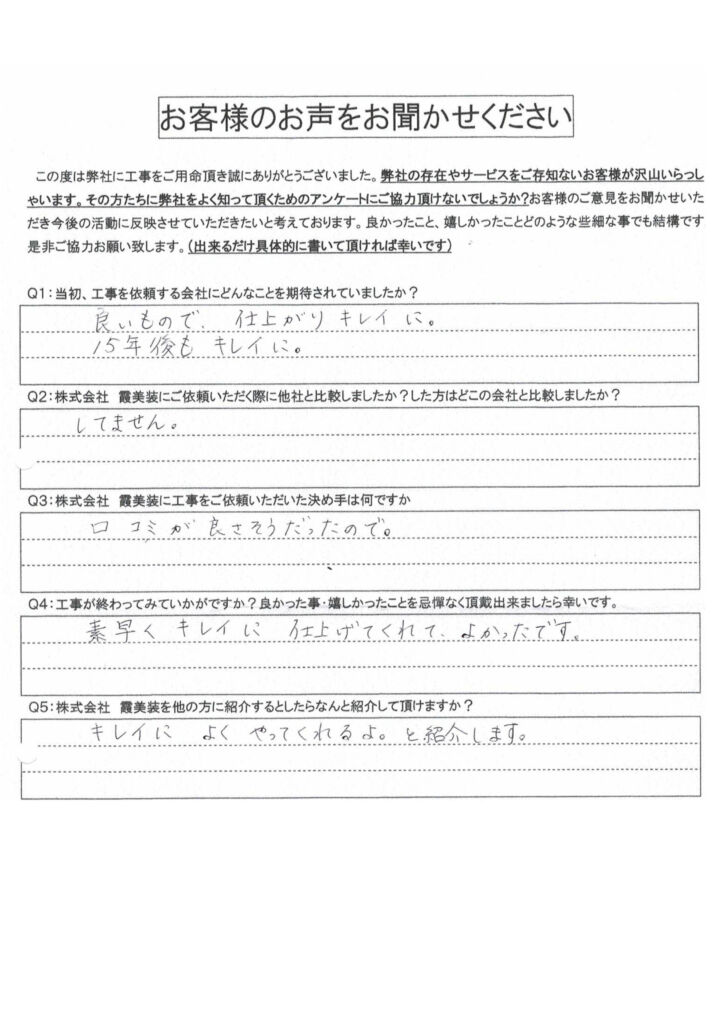 お客様のお声をお聞かせください
この度は弊社に工事をご用命頂き誠にありがとうございました。弊社の存在やサービスをご存知ないお客様が沢山いらっし
ゃいます。その方たちに弊社をよく知って頂くためのアンケートにご協力頂けないでしょうか?お客様のご意見をお聞かせいた
だき今後の活動に反映させていただきたいと考えております。良かったこと、嬉しかったことどのような些細な事でも結構です
是非ご協力お願い致します。(出来るだけ具体的に書いて頂ければ幸いです)
Q1:当初、工事を依頼する会社にどんなことを期待されていましたか?
良いもので、仕上がりキレイに。
15年後もキレイに。
Q2:株式会社 霞美装にご依頼いただく際に他社と比較しましたか?した方はどこの会社と比較しましたか?
してません。
Q3:株式会社 霞美装に工事をご依頼いただいた決め手は何ですか
口コミが良さそうだったので。
Q4:工事が終わってみていかがですか?良かった事・嬉しかったことを忌憚なく頂戴出来ましたら幸いです。
素早くキレイに仕上げてくれて、よかったです。
Q5:株式会社 霞美装を他の方に紹介するとしたらなんと紹介して頂けますか?
キレイに よくやってくれるよ。と紹介します。